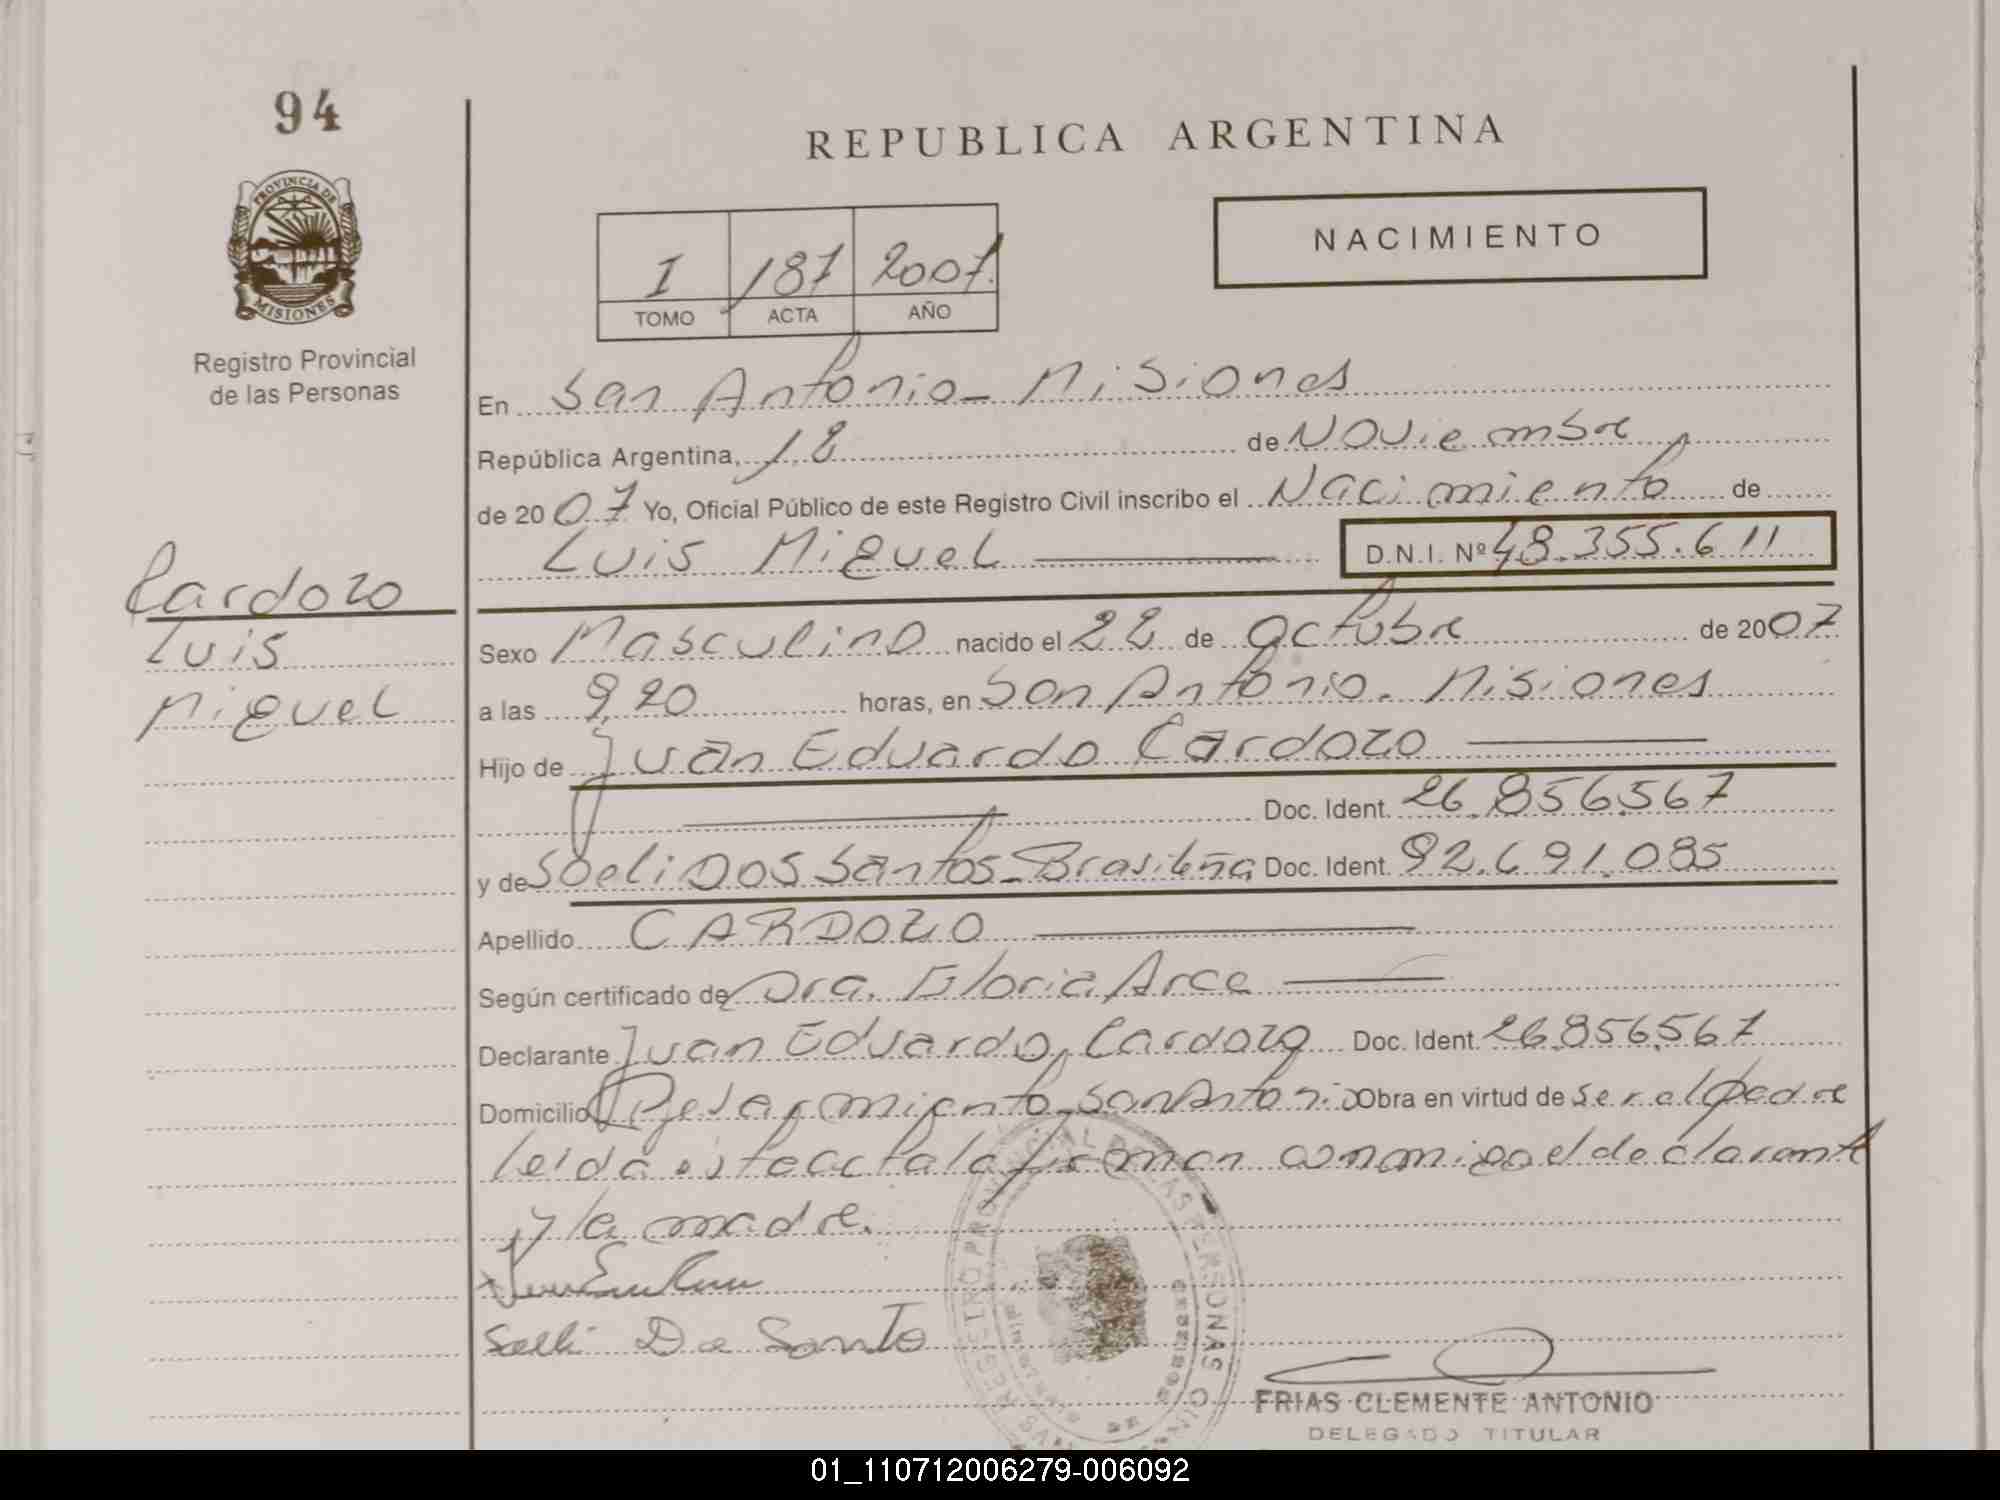 94
REPUBLICA ARGENTINA
PROVINCIA DE
MISIONES
NACIMIENTO
I 187 2007.
TOMO ACTA AÑO
Registro Provincial
de las Personas
En San Antonio - Misiones
República Argentina, 12 de Noviembre
de 2007 Yo, Oficial Público de este Registro Civil inscribo el Nacimiento de
Luis Miguel D.N.I. Nº 48.355.611
Cardozo
Luis
Miguel
Sexo Masculino nacido el 22 de Octubre de 2007
a las 9,20 horas, en San Antonio. Misiones
Hijo de Juan Eduardo Cardozo
Doc. Ident. 26.856.567
y de Soeli Dos Santos - Brasileña Doc. Ident. 92.691.085
Apellido CARDOZO
Según certificado de Dra. Gloria Arce
Declarante Juan Eduardo Cardozo Doc. Ident. 26.856.567
Domicilio San Antonio Obra en virtud de ser el padre
leida esta acta la firman conmigo el declarante
y la madre.
Selli De Santo
FRIAS CLEMENTE ANTONIO
DELEGADO TITULAR
01_110712006279-006092